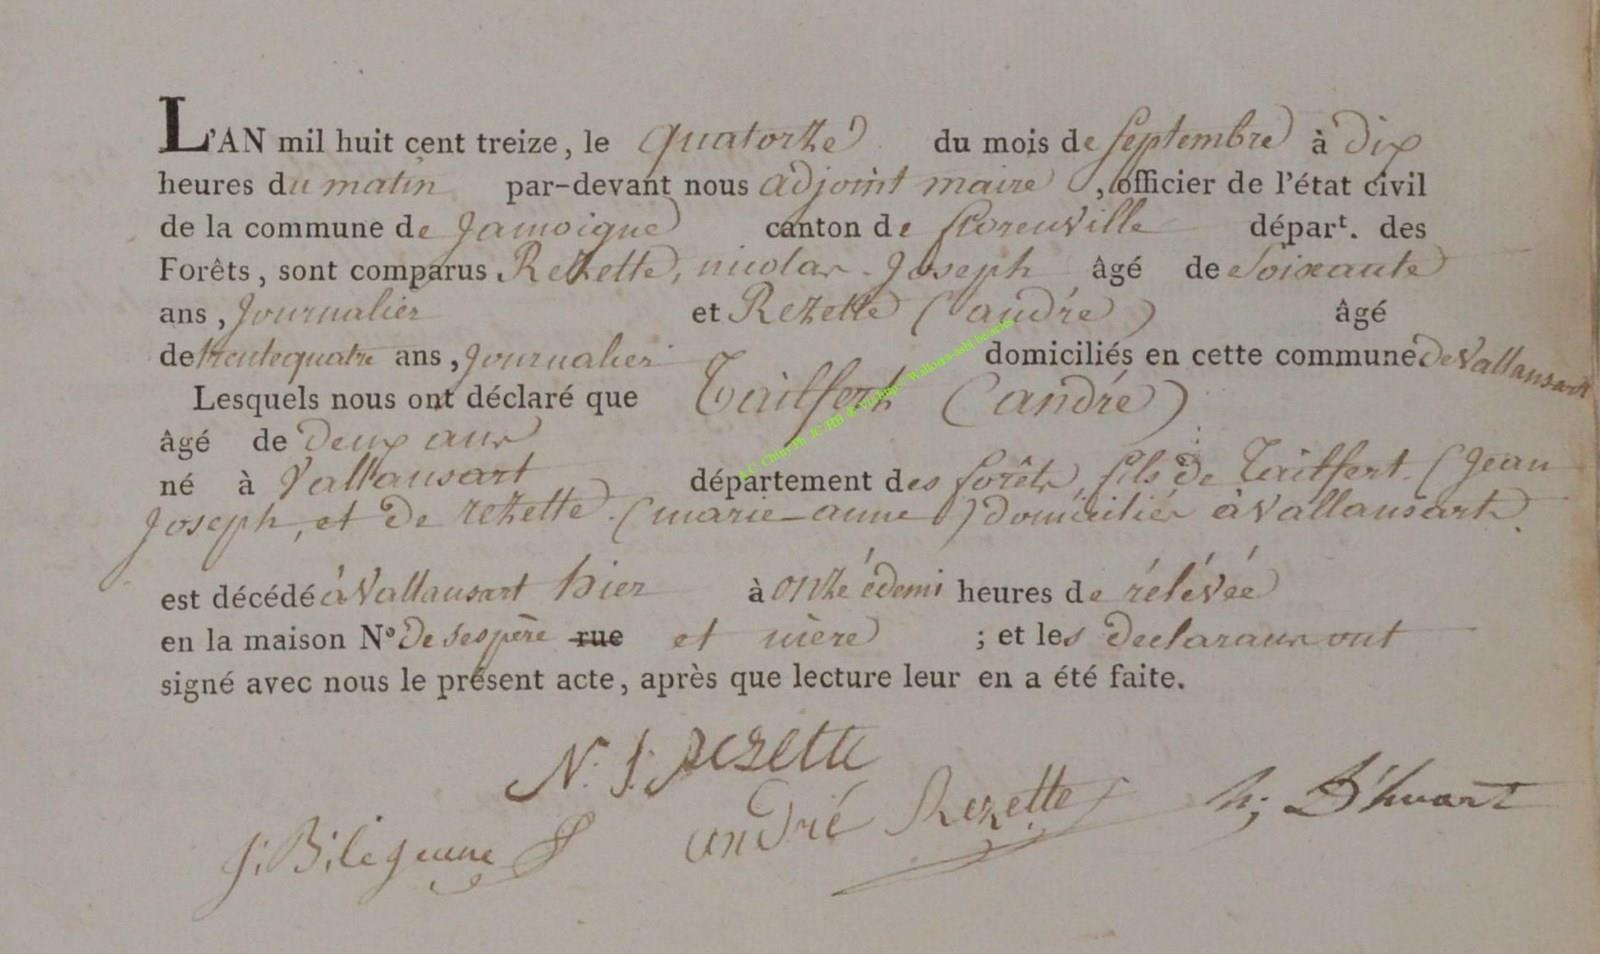 L'AN mil huit cent treize, le quatorze du mois de septembre à dix
heures du matin par-devant nous adjoint maire, officier de l'état civil
de la commune de Jamoigne canton de florenvilleépart. des
Forêts, sont comparus Rezette, nicolas Joseph âgé de soixante
ans, journalier et Rezette (andré) âgé
de trentequatre ans, journalier domiciliés en cette commune de Vallansart
Lesquels nous ont déclaré que Tailfert (andré)
âgé de deux ans
né à Vallansart département des forêts, fils de Tailfert (Jean
Joseph, et de rezette (marie-anne) domiciliés à Vallansart.
est décédé à Vallansart hier à onze édemi heures de rélévée
en la maison N° de ses père rue et mère ; et les declarans ont
signé avec nous le présent acte, après que lecture leur en a été faite.
N. J. rezette
andré Rezette
D'huart